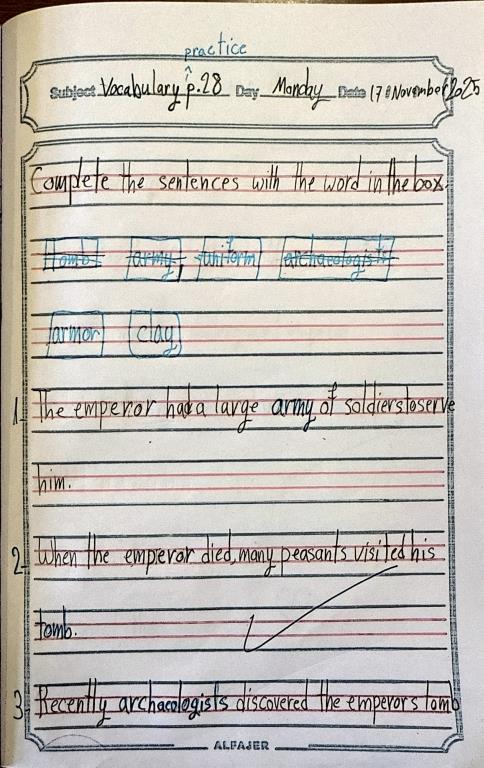 practice
Subject Vocabulary p.28 Day Monday Date 17 November 2025
Complete the sentences with the word in the box.
tomb army uniform archaeologists
armor clay
1. The emperor had a large army of soldiers to serve
him.
2. When the emperor died, many peasants visited his
tomb.
3. Recently archaeologists discovered the emperors tomb
ALFAJER